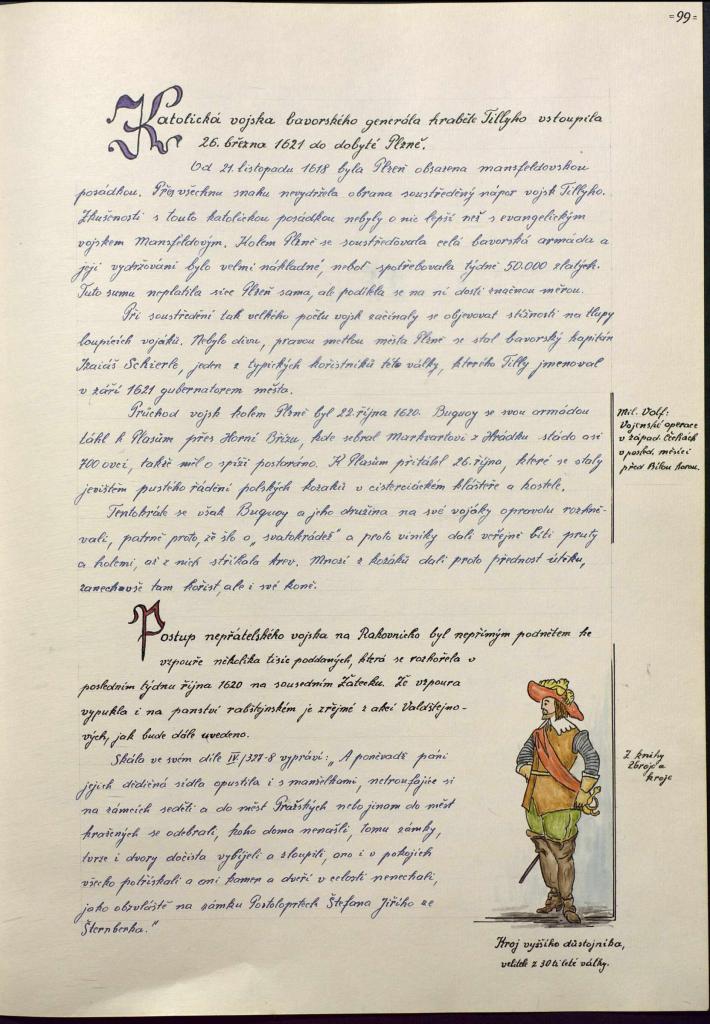 =99=
Katolická vojska bavorského generála hraběte Tillyho vstoupila
26. března 1621 do dobyté Plzně.
Od 21. listopadu 1618 byla Plzeň obsazena mansfeldovskou
posádkou. Přes všechnu snahu nevydržela obrana soustředěný nápor vojsk Tillyho.
Zkušenosti s touto katolickou posádkou nebyly o nic lepší než s evangelickým
vojskem Mansfeldovým. Kolem Plzně se soustřeďovala celá bavorská armáda a
její vydržování bylo velmi nákladné, neboť spotřebovala týdně 50.000 zlatých.
Tuto sumu neplatila sice Plzeň sama, ale podílela se na ní dosti značnou měrou.
Při soustředění tak velkého počtu vojsk začínaly se objevovat stížnosti na tlupy
loupících vojáků. Nebylo divu, pravou metlou města Plzně se stal bavorský kapitán
Izaiáš Schierle, jeden z typických kořistníků této války, kterého Tilly jmenoval
v září 1621 gubernatorem města.
Průchod vojsk kolem Plzně byl 22. října 1620. Buquoy se svou armádou
táhl k Plasům přes Horní Břízu, kde sebral Markvartovi z Hrádku stádo asi
700 ovcí, takže měl o spíži postaráno. K Plasům přitáhl 26. října, které se staly
jevištěm pustého řádění polských kozáků v cisterciáckém klášteře a kostele.
Tentokráte se však Buquoy a jeho družina na své vojáky opravdu rozhně-
vali, patrně proto, že šlo o „svatokrádež" a proto viníky dali veřejně bíti pruty
a holemi, až z nich stříkala krev. Mnozí z kozáků dali proto přednost útěku,
zanechavše tam kořist, ale i své koně.
Mil. Volf:
Vojenské operace
v západ. Čechách
v posled. měsíci
před Bílou horou.
Postup nepřátelského vojska na Rakovnicko byl nepřímým podnětem ke
vzpouře několika tisíc poddaných, která se rozhořela v
posledním týdnu října 1620 na sousedním Žatecku. Že vzpoura
vypukla i na panství rabštejnském je zřejmé z akcí Valdštejno-
vých, jak bude dále uvedeno.
Skála ve svém díle IV/327-8 vypráví: „A poněvadž páni
jejich dědičná sídla opustili i s manželkami, netroufajíce si
na zámcích seděti a do měst Pražských nebo jinam do měst
hražených se odebrali, koho doma nenašli, tomu zámky,
tvrze i dvory dočista vybíjeli a zloupili, ano i v pokojích
všecko potřískali a ani kamen a dveří v celosti nenechali,
jako obzvláště na zámku Postoloprtech Štefana Jiřího ze
Šternberka."
Z knihy
Zbroj a
kroje
Kroj vyššího důstojníka,
velitele z 30ti leté války.